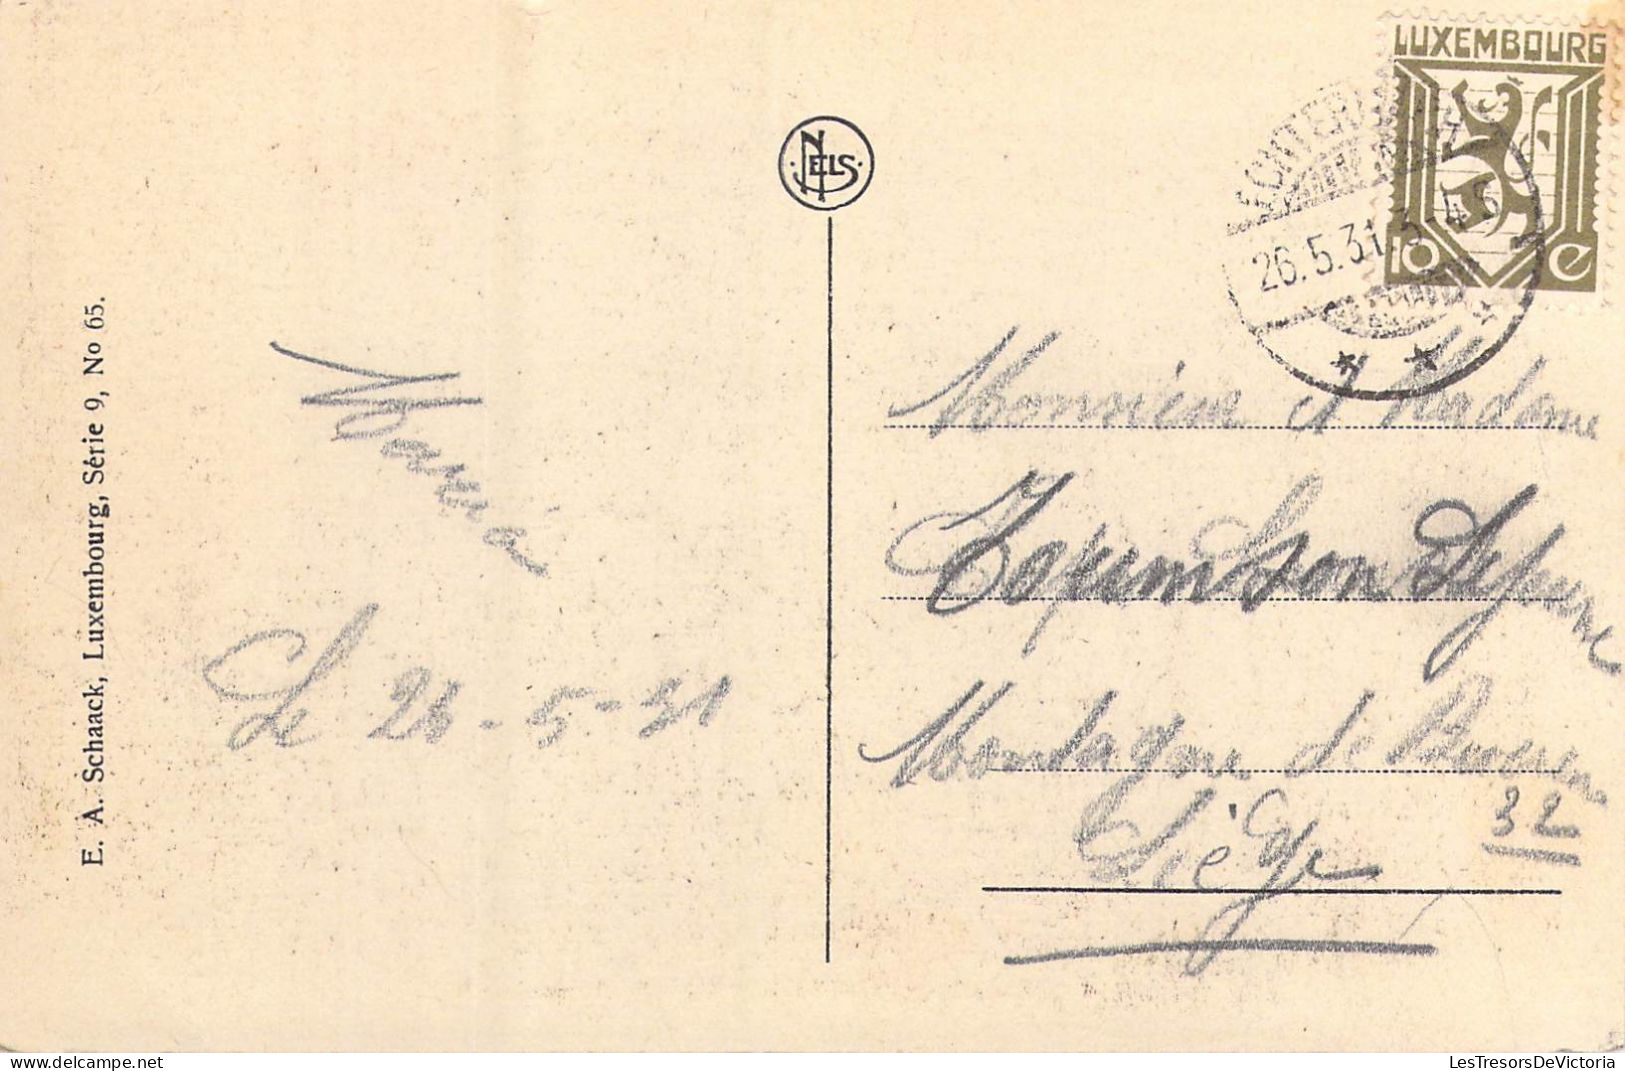 E. A. Schaack, Luxembourg, Série 9, No 65.
NELS
LUXEMBOURG
10 c
ECHTERN
26.5.31. 3-4 S
Maria
Le 26-5-31
Monsieur et Madame
Montagne de Bueren
32
Liège
LesTresorsDeVictoria